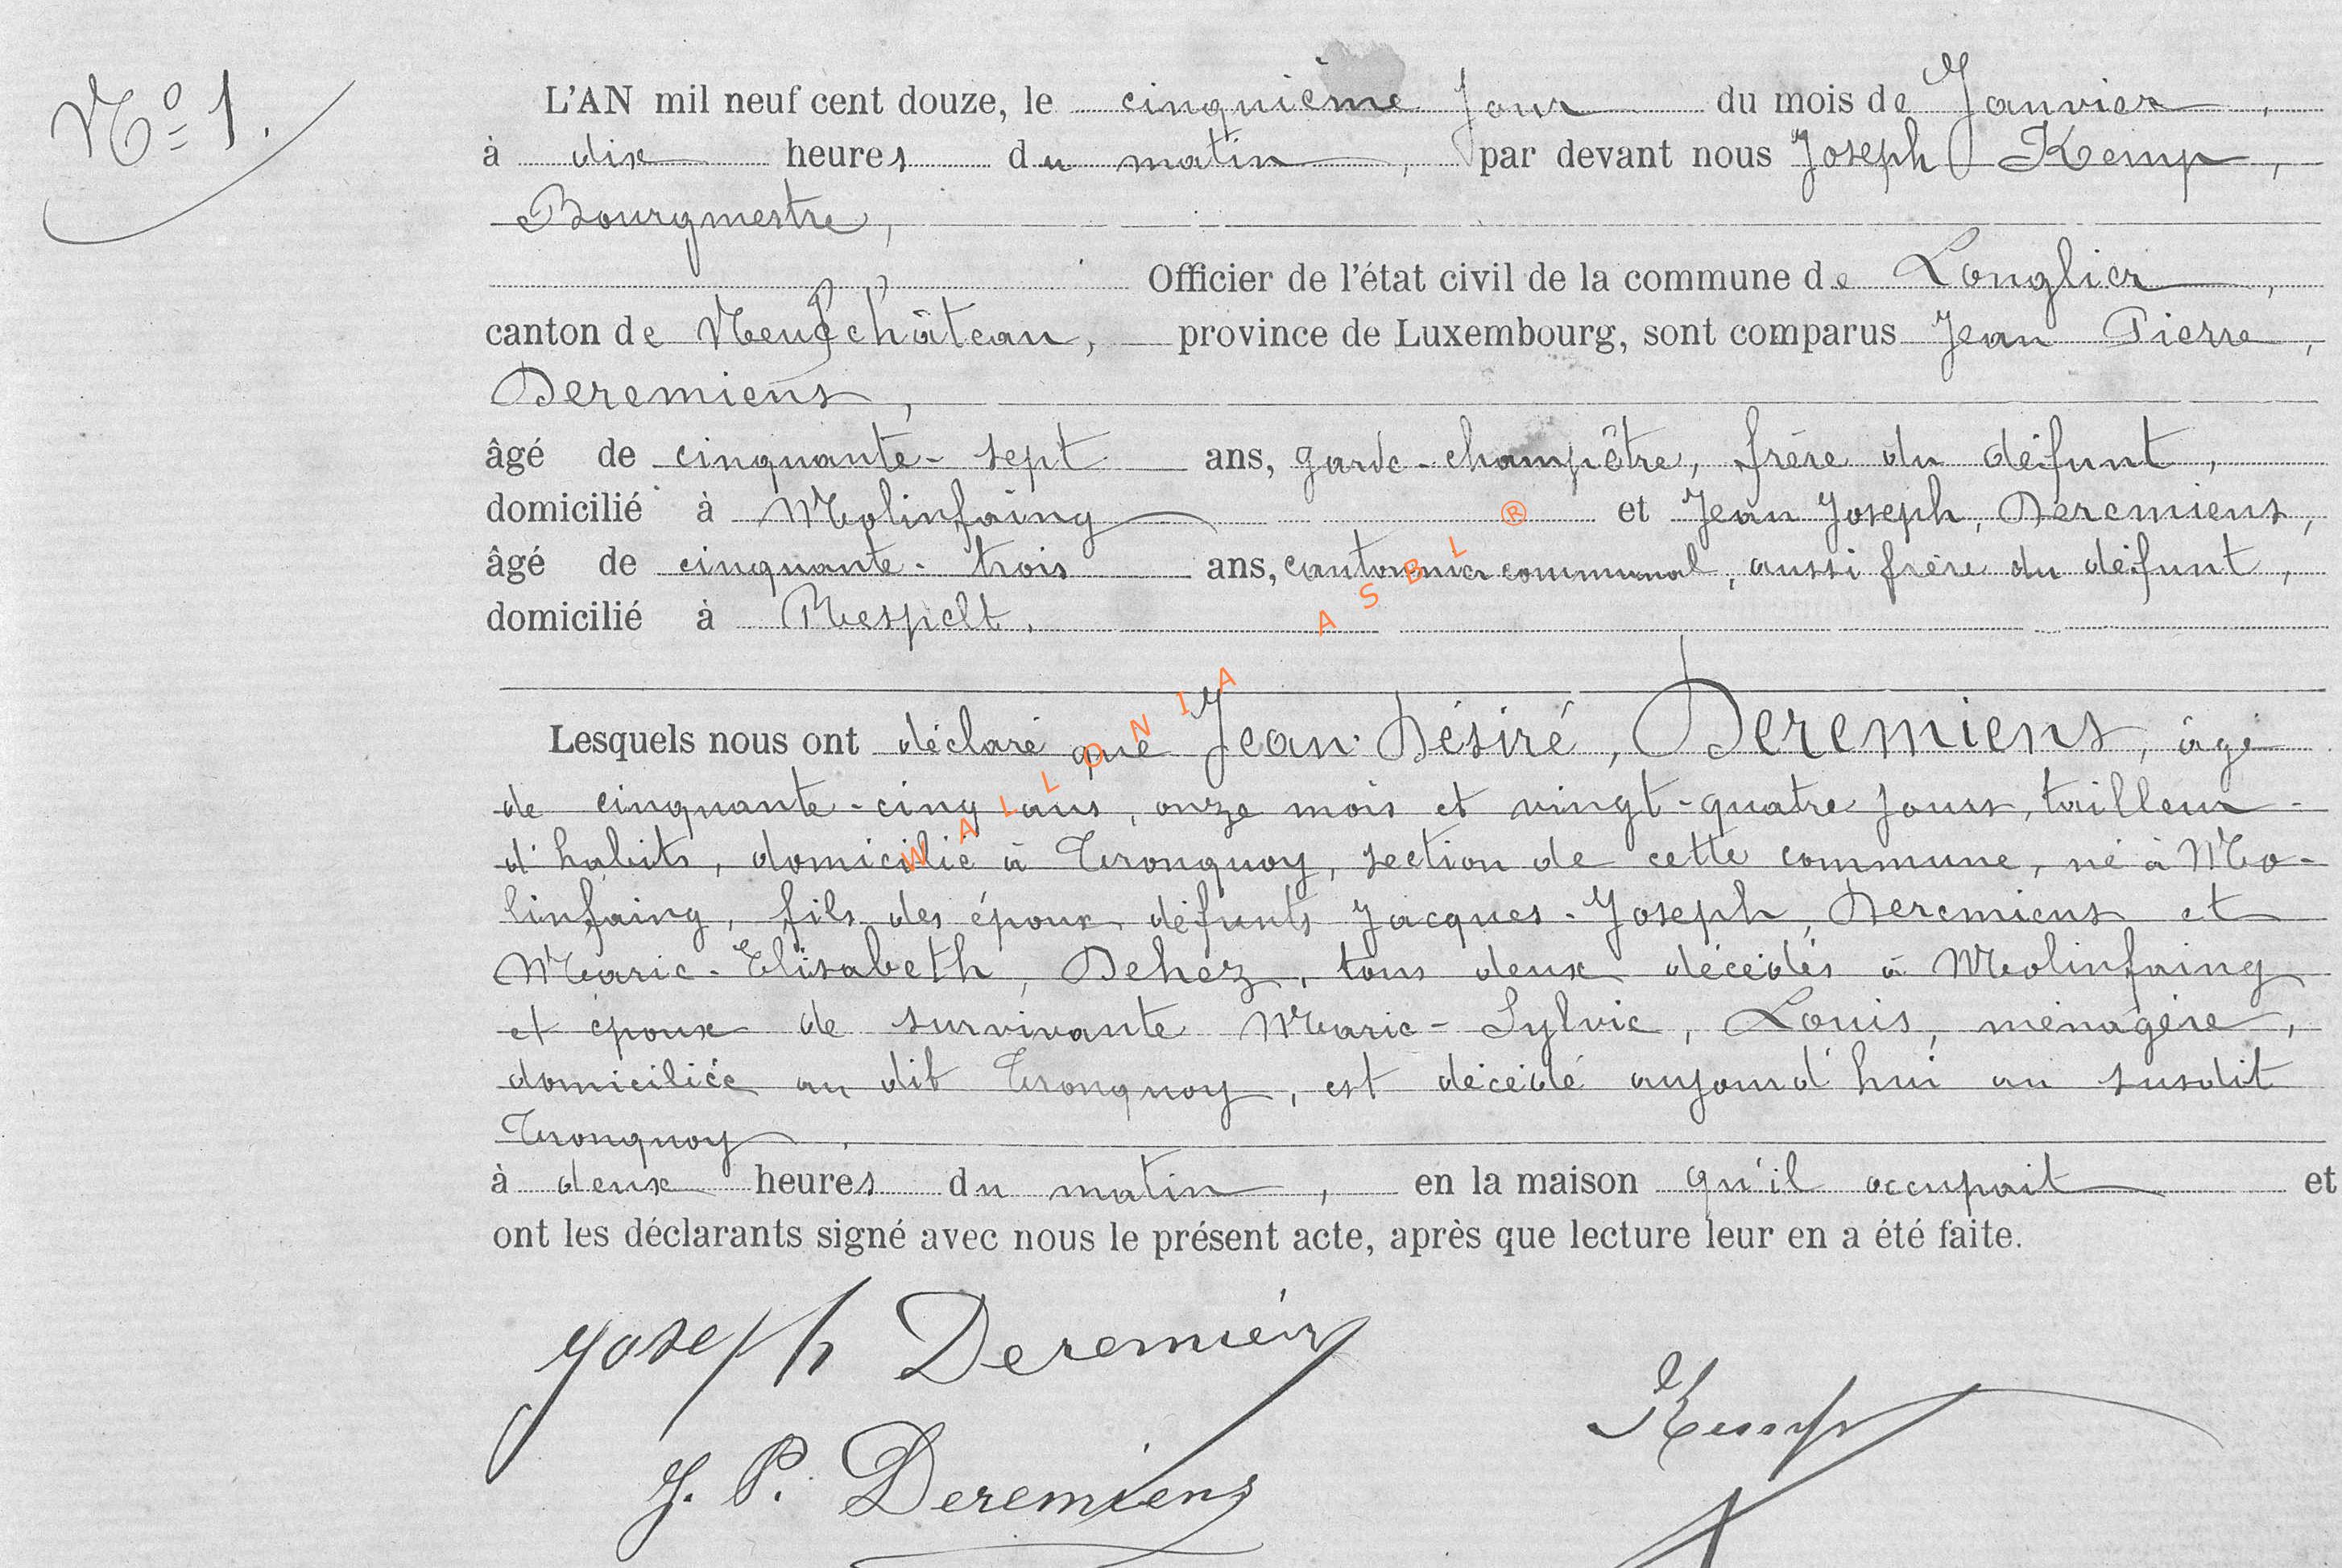 N° 1.
L'AN mil neuf cent douze, le cinquième jour du mois de Janvier,
à dix heures du matin, par devant nous Joseph Kemp,
Bourgmestre,
Officier de l'état civil de la commune de Longlier,
canton de Neufchâteau, province de Luxembourg, sont comparus Jean Pierre,
Deremiens,
âgé de cinquante-sept ans, garde-champêtre, frère du défunt,
domicilié à Molinfaing et Jean Joseph, Deremiens,
âgé de cinquante-trois ans, cantonnier communal, aussi frère du défunt,
domicilié à Respelt.
Lesquels nous ont déclaré que Jean Désiré, Deremiens, âgé
de cinquante-cinq ans, onze mois et vingt-quatre jours, tailleur
d'habits, domicilié à Tronquoy, section de cette commune, né à Mo-
linfaing, fils des époux défunts Jacques-Joseph, Deremiens et
Marie-Elisabeth, Dehez, tous deux décédés à Molinfaing
et époux de survivante Marie-Sylvie, Louis, ménagère,
domiciliée au dit Tronquoy, est décédé aujourd'hui au susdit
Tronquoy.
à deux heures du matin, en la maison qu'il occupait et
ont les déclarants signé avec nous le présent acte, après que lecture leur en a été faite.
Joseph Deremiens
J. P. Deremiens
Kemp
WALLONIA ASBL ®